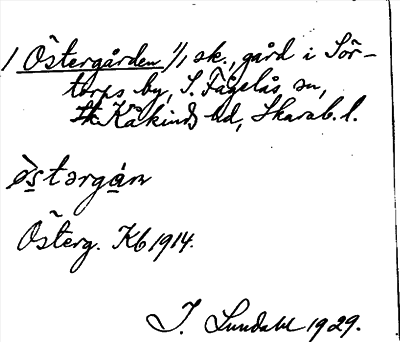 / Östergården 1/1 sk., gård i Sör-
torps by, S. Fågelås sn,
Kåkinds hd, Skarab. l.
östərgán
Österg. Kb 1914.
I. Lundahl 1929.